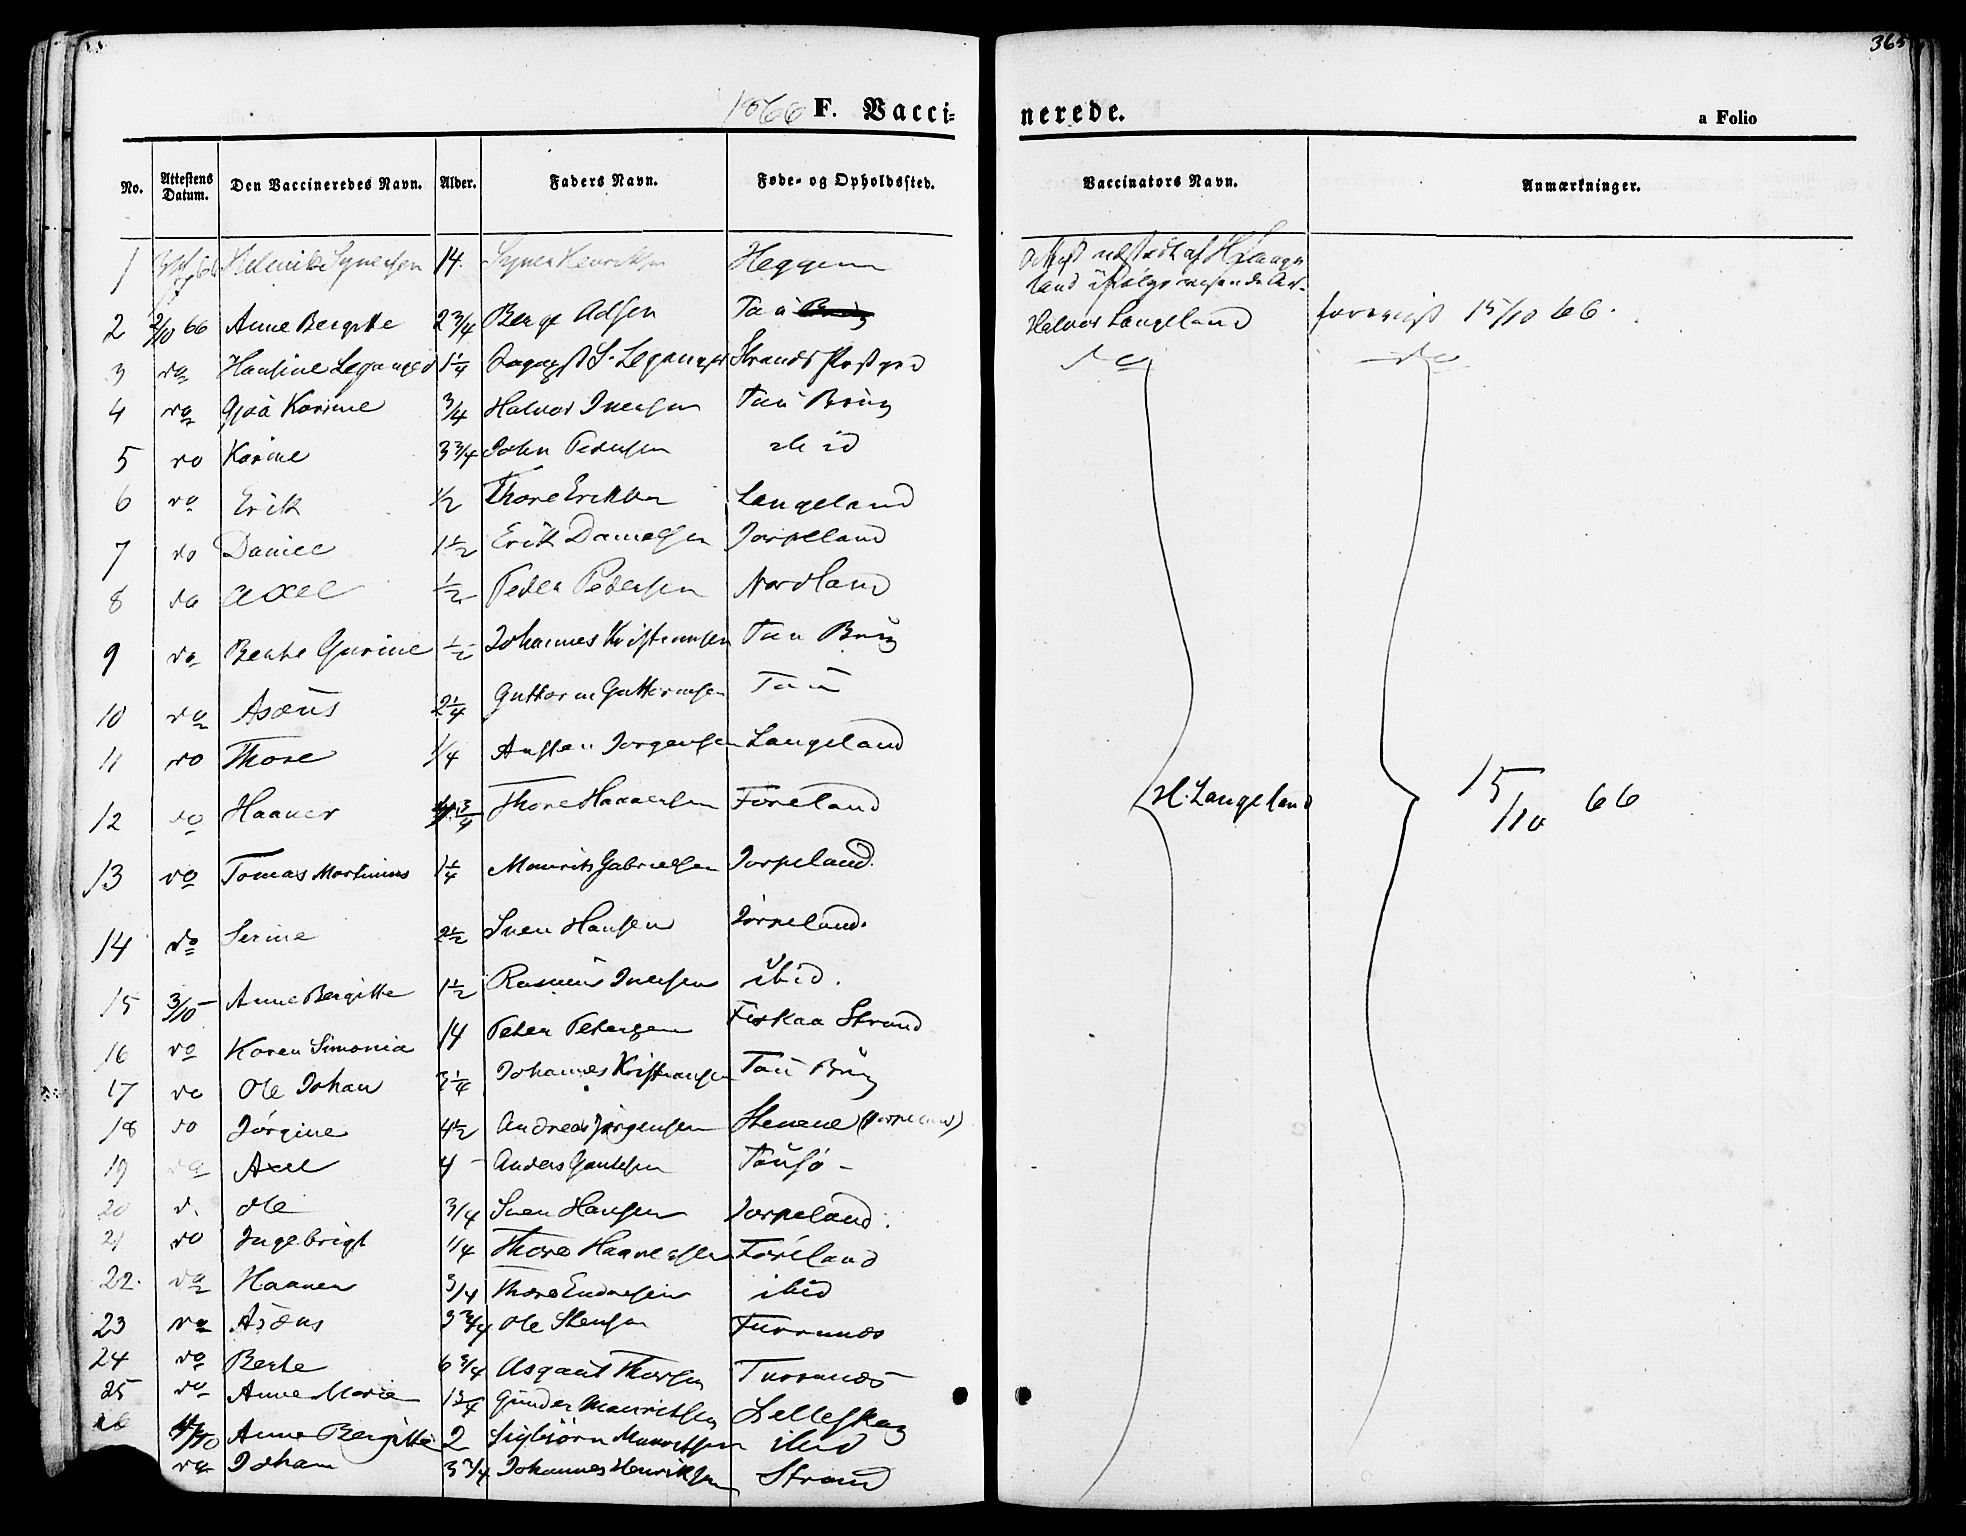 365
1866 F. Vacci=
nerede.
a Folio
No. Attestens Datum. Den Vaccineredes Navn. Alder. Faders Navn. Føde- og Opholdssted. Vaccinators Navn. Anmærkninger.
1 14. Heggem Attest udstædt af H Lange
land
2 2/10 66 Anne Bergitte 2 3/4 Berge Adsen Tau Halvor Langeland forevist 15/10 66.
3 do Hansine Leganger 1 1/4 S. Leganger Strands Præstgrd do do
4 do Gjoa Karine 3/4 Halvor Iversen Tau Brug
5 do Karine 3 3/4 John Pedersen ibid
6 do Erik 1/2 Thore Eriksen Langeland
7 do Daniel 1 1/2 Erik Danielsen Jorpeland
8 do Axel 1/2 Peder Pedersen Nordland
9 do Berte Gurine 1/2 Johannes Kristiansen Tau Brug
10 do Asæus 2 1/4 Guttorm Guttormsen Tau
11 do Thore 1/4 Austen Jorgensen Langeland
12 do Haaver 3/4 Thore Haaversen Foreland H. Langeland 15/10 66
13 do Tomas Martinius 1 1/4 Maurits Gabrielsen Jorpeland.
14 do Serine 2 1/2 Sven Hansen Jørpeland.
15 3/10 - Anne Bergitte 1 1/2 Rasmus Iversen ibid.
16 do Karen Simonia 14 Peter Petersen Fiskaa Strand
17 do Ole Johan 3 1/4 Johannes Kristiansen Tau Brug
18 do Jørgine 4 1/2 Andreas Jørgensen Stenene (Jorpeland)
19 do Axel 4 - Anders Tausø -
20 d. Ole 3/4 Sven Hansen Jorpeland.
21 do Ingebrigt 1/4 Thore Haaversen Foreland
22. do Haaver 3/4 Thore Endresen ibid
23 do Asæus 3 3/4 Ole Stensen Furrunes
24 do Berte 6 3/4 Asgaut Thorsen Turrunes
25 do Anne Marie 1 3/4 Gunder Mauritsen Lelleskog
26 4/10 Anne Bergitte 2 Sigbjørn Mauritsen ibid
do Johan 3 3/4 Johannes Henriksen Strand